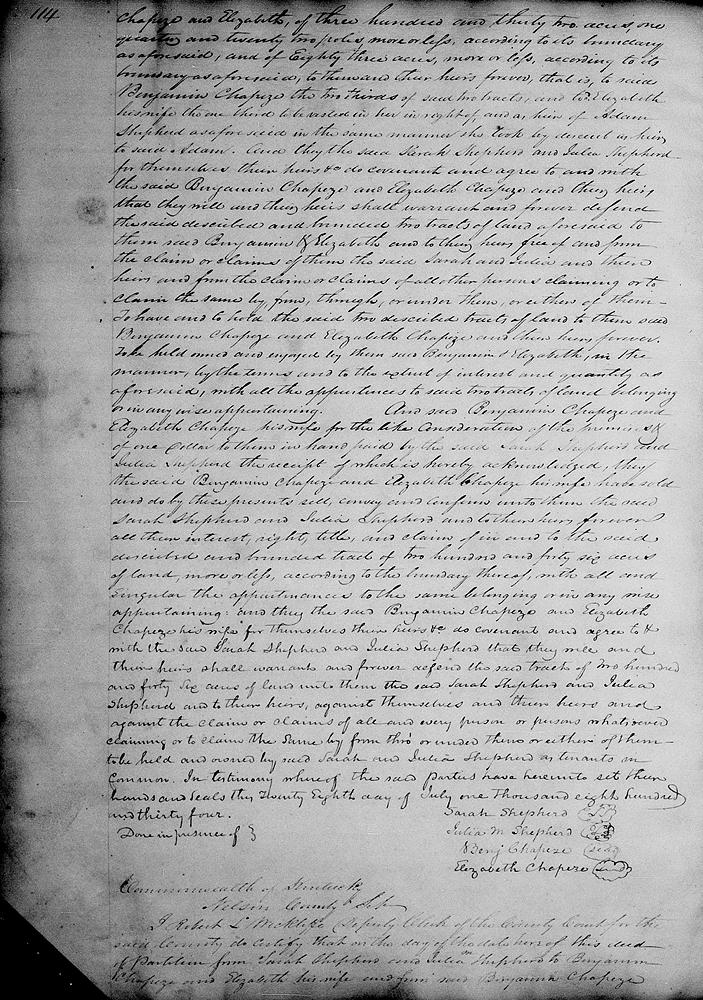 114
Chapeze and Elizabeth, of three hundred and thirty two acres, one
quarter and twenty two poles, more or less, according to its boundary
as aforesaid, and of Eighty three acres, more or less, according to its
boundary as aforesaid, to them and their heirs forever, that is, to said
Benjamin Chapeze the two thirds of said two tracts, and to Elizabeth
his wife the one third to be vested in her in right of, and as heir of Adam
Shepherd as aforesaid in the same manner she took by descent as heir
to said Adam. And they the said Sarah Shepherd and Julia Shepherd
for themselves their heirs &c do covenant and agree to and with
the said Benjamin Chapeze and Elizabeth Chapeze and their heirs
that they will and their heirs shall warrant and forever defend
the said described and bounded two tracts of land aforesaid to
them said Benjamin & Elizabeth and to their heirs free of and from
the claim or claims of them the said Sarah and Julia and their
heirs and from the claim or claims of all other persons claiming or to
claim the same by, from, through, or under them, or either of them -
To have and to hold the said two described tracts of land to them said
Benjamin Chapeze and Elizabeth Chapeze and their heirs forever.
To be held owned and enjoyed by them said Benjamin & Elizabeth, in the
manner, by the terms and to the extent of interest and quantity as
aforesaid, with all the appurtences to said two tracts of land belonging
or in any wise appertaining. And said Benjamin Chapeze and
Elizabeth Chapeze his wife for the like Consideration of the premises &
of one Dollar to them in hand paid by the said Sarah Shepherd and
Julia Shepherd the receipt of which is hereby acknowledged, they
the said Benjamin Chapeze and Elizabeth Chapeze his wife have sold
and do by these presents sell, convey and confirm unto them the said
Sarah Shepherd and Julia Shepherd and to their heirs forever
all their interest, right, title, and claim of in and to the said
described and bounded tract of two hundred and forty six acres
of land, more or less, according to the boundary thereof, with all and
singular the appurtinances to the same belonging or in any wise
appertaining: and they the said Benjamin Chapeze and Elizabeth
Chapeze his wife for themselves their heirs &c do covenant and agree to &
with the said Sarah Shepherd and Julia Shepherd that they will and
their heirs shall warrant and forever defend the said tracts of two hundred
and forty Six acres of land unto them the said Sarah Shepherd and Julia
Shepherd and to their heirs, against themselves and their heirs and
against the claim or claims of all and every person or persons whatsoever
claiming or to claim the same by from thro' or under them or either of them -
to be held and owned by said Sarah and Julia Shepherd as tenants in
common. In testimony whereof the said parties have hereunto set their
hands and seals this Twenty Eighth day of July one Thousand eight hundred
and thirty four.
Sarah Shepherd
Done in presence of }
Julia M Shepherd
Benj Chapeze (seal)
Elizabeth Chapeze (seal)
Commonwealth of Kentucky
Nelson County Sct
I Robert L Wickliffe Deputy Clerk of the County Court for the
said County do certify that on the day of the date hereof this deed
of Partition from Sarah Shepherd and Julia Shepherd to Benjamin
Chapeze and Elizabeth his wife and from said Benjamin Chapeze